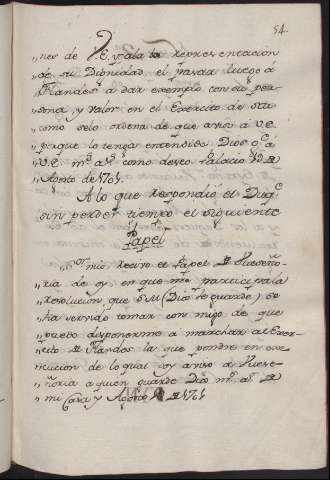 54.
„nes de V.E. y a la representacion
„de su Dignidad, el passar luego á
„Flandes á dar exemplo con su per
„sona, y valor en el Exercito de
„como selo ordena de que aviso á V.E.
„paraque lo tenga entendido Dios g.e á
„V.E. m.s a.s como deseo. Palacio de
„Agosto de 1701.
A lo que respondió el Duq.e
sin perder tiempo el siguiente
Papel
„S.or mio, recivo el Papel de Vueseño-
„ria de oy, en que me participa la
„resolucion que S.M. (Dios le guarde) se
„ha servido tomar con migo de que
„puesto disponerme a marchar al Exer-
„cito de Flandes la que pondre en exe-
„cucion de lo qual doy aviso a Vuese-
„ñoria a quien guarde Dios m.s a.s de
„mi Casa y Agosto de 1701